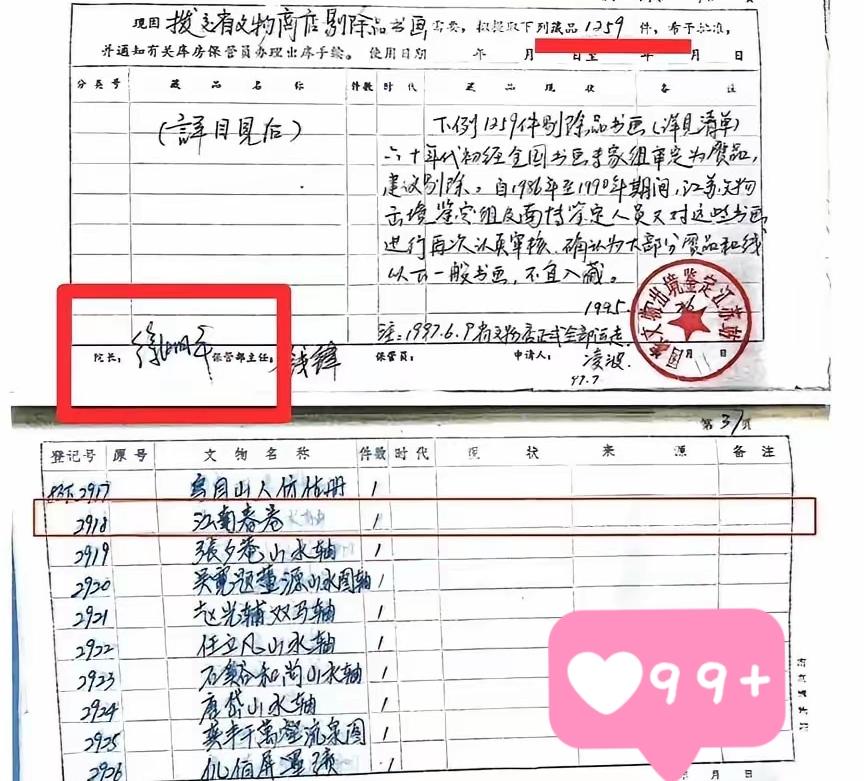 现因 拨交省文物商店剔除品书画 需要，拟提取下列藏品 1259 件，希予批准，
并通知有关库房保管员办理出库手续。使用日期 年 月 日至 年 月 日
分类号 藏品名称 件数 时代 藏品现状 备注
(詳目見后)
下列1259件剔除品书画(详见清单)
六十年代初经全国书画专家组审定为赝品，
建议剔除。自1986年至1990年期间，江苏文物
出境鉴定组及南博鉴定人员又对这些书画
进行再次认真审核，确认为大部分赝品和
以下一般书画，不宜入藏。
1995.
注：1997.6.9 省文物店正式全部运走
院长： 徐湖平 保管部主任： 钱锋 保管员： 申请人： 凌波
97.7 月 日
文物出境鉴定江苏站
第 37 页
登记号 原号 文物名称 件数 时代 现状 来源 备注
2917 乌目山人仿古册 1
2918 江南春卷 1
2919 張夕庵山水轴 1
2920 吴寛题董源山水图轴 1
2921 赵光辅双马轴 1
2922 任立凡山水轴 1
2923 石谿和尚山水轴 1
2924 唐岱山水轴 1
2925 龚半千萬壑流泉图 1
2926 1
99+
月 日